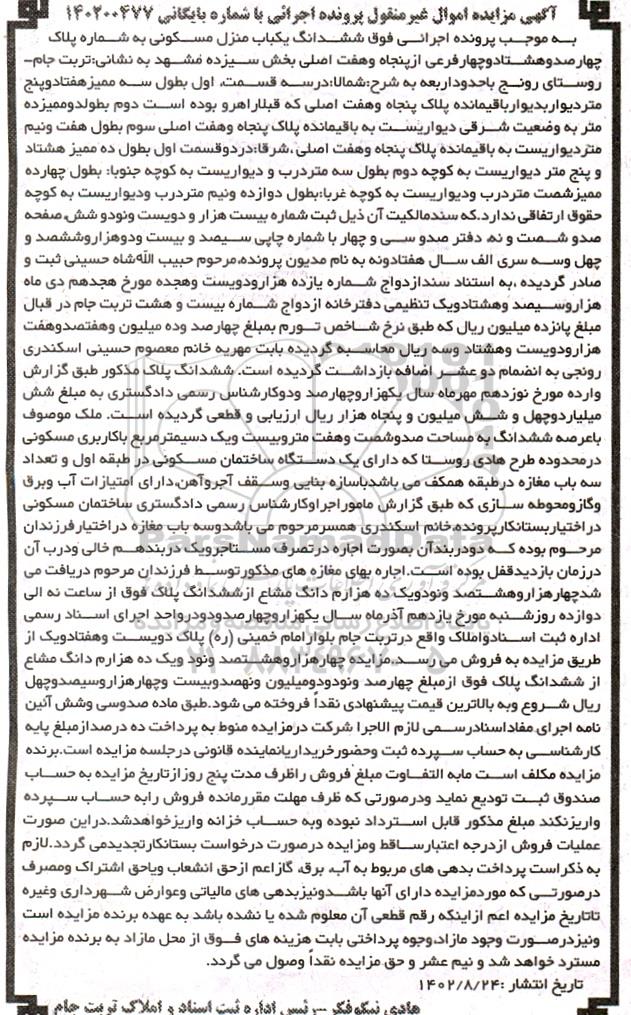 آگهی مزایده اموال غیرمنقول پرونده اجرائی با شماره بایگانی ۱۴۰۲۰۰۴۷۷
به موجب پرونده اجرائی فوق ششدانگ یکباب منزل مسکونی به شماره پلاک
چهارصدوهشتادوچهارفرعی ازپنجاه وهفت اصلی بخش سیزده مشهد به نشانی:تربت جام-
روستای رونج باحدوداربعه به شرح:شمالا:درسه قسمت، اول بطول سه ممیزهفتادوپنج
متردیواربدیوارباقیمانده پلاک پنجاه وهفت اصلی که قبلاراهرو بوده است دوم بطولدوممیزده
متر به وضعیت شرقی دیواریست به باقیمانده پلاک پنجاه وهفت اصلی سوم بطول هفت ونیم
متردیواریست به باقیمانده پلاک پنجاه وهفت اصلی ،شرقا:دردوقسمت اول بطول ده ممیز هشتاد
و پنج متر دیواریست به کوچه دوم بطول سه متردرب و دیواریست به کوچه جنوبا: بطول چهارده
ممیزشصت متردرب ودیواریست به کوچه غربا:بطول دوازده ونیم متردرب ودیواریست به کوچه
حقوق ارتفاقی ندارد.که سندمالکیت آن ذیل ثبت شماره بیست هزار و دویست ونودو شش،صفحه
صدو شصت و نه، دفتر صدو سی و چهار با شماره چاپی سیصد و بیست ودوهزاروششصد و
چهل وسه سری الف سال هفتادونه به نام مدیون پرونده،مرحوم حبیب الله شاه حسینی ثبت و
صادر گردیده ،به استناد سندازدواج شماره یازده هزارودویست وهجده مورخ هجدهم دی ماه
هزاروسیصد وهشتادویک تنظیمی دفترخانه ازدواج شماره بیست و هشت تربت جام در قبال
مبلغ پانزده میلیون ریال که طبق نرخ شاخص تورم بمبلغ چهارصد وده میلیون وهفتصدوهفت
هزارودویست وهشتاد وسه ریال محاسبه گردیده بابت مهریه خانم معصوم حسینی اسکندری
رونجی به انضمام دو عشر اضافه بازداشت گردیده است. ششدانگ پلاک مذکور طبق گزارش
وارده مورخ نوزدهم مهرماه سال یکهزاروچهارصد ودوکارشناس رسمی دادگستری به مبلغ شش
میلیاردوچهل و شش میلیون و پنجاه هزار ریال ارزیابی و قطعی گردیده است. ملک موصوف
باعرصه ششدانگ به مساحت صدوشصت وهفت متروبیست ویک دسیمترمربع باکاربری مسکونی
درمحدوده طرح هادی روستا که دارای یک دستگاه ساختمان مسکونی در طبقه اول و تعداد
سه باب مغازه درطبقه همکف می باشدباسازه بنایی وسقف آجروآهن،دارای امتیازات آب وبرق
وگازومحوطه سازی که طبق گزارش ماموراجراوکارشناس رسمی دادگستری ساختمان مسکونی
در اختیاربستانکارپرونده،خانم اسکندری همسرمرحوم می باشدوسه باب مغازه در اختیارفرزندان
مرحوم بوده که دودربندآن بصورت اجاره درتصرف مستاجرویک دربندهم خالی ودرب آن
درزمان بازدیدقفل بوده است.اجاره بهای مغازه های مذکورتوسط فرزندان مرحوم دریافت می
شدچهارهزاروهشتصد ونودویک ده هزارم دانگ مشاع ازششدانگ پلاک فوق از ساعت نه الی
دوازده روزشنبه مورخ یازدهم آذرماه سال یکهزاروچهارصدودودرواحد اجرای اسناد رسمی
اداره ثبت اسنادواملاک واقع درتربت جام بلوارامام خمینی (ره) پلاک دویست وهفتادویک از
طریق مزایده به فروش می رسد.مزایده چهارهزاروهشتصد ونود ویک ده هزارم دانگ مشاع
از ششدانگ پلاک فوق ازمبلغ چهارصد ونودودومیلیون ونهصدوبیست وچهارهزاروسیصدوچهل
ریال شروع وبه بالاترین قیمت پیشنهادی نقداً فروخته می شود.طبق ماده صدوسی وشش آئین
نامه اجرای مفاداسنادرسمی لازم الاجرا شرکت درمزایده منوط به پرداخت ده درصدازمبلغ پایه
کارشناسی به حساب سپرده ثبت وحضورخریداریانماینده قانونی درجلسه مزایده است.برنده
مزایده مکلف است مابه التفاوت مبلغ فروش راظرف مدت پنج روزازتاریخ مزایده به حساب
صندوق ثبت تودیع نماید ودرصورتی که ظرف مهلت مقررمانده فروش رابه حساب سپرده
واریزنکند مبلغ مذکور قابل استرداد نبوده وبه حساب خزانه واریزخواهدشد.دراین صورت
عملیات فروش ازدرجه اعتبارساقط ومزایده درصورت درخواست بستانکارتجدیدمی گردد.لازم
به ذکراست پرداخت بدهی های مربوط به آب، برق، گازاعم ازحق انشعاب ویاحق اشتراک ومصرف
درصورتی که موردمزایده دارای آنها باشدونیزبدهی های مالیاتی وعوارض شهرداری وغیره
تاتاریخ مزایده اعم ازاینکه رقم قطعی آن معلوم شده یا نشده باشد به عهده برنده مزایده است
ونیزدرصورت وجود مازاد،وجوه پرداختی بابت هزینه های فوق از محل مازاد به برنده مزایده
مسترد خواهد شد و نیم عشر و حق مزایده نقداً وصول می گردد.
تاریخ انتشار :۱۴۰۲/۸/۲۴
هادی نیکوفکر -رئیس اداره ثبت اسناد و املاک تربت جام
ParsNamadData